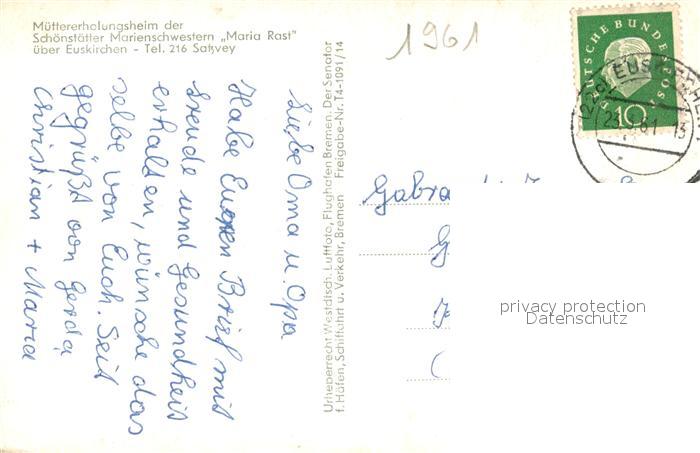 Müttererholungsheim der
Schönstätter Marienschwestern „Maria Rast"
über Euskirchen - Tel. 216 Satzvey
1961
DEUTSCHE BUNDESPOST
10
EUSKIRCHEN
61 13
Liebe Oma u. Opa
Habe Euren Brief mit
Freude und Gesundheit
erhalten, wünsche das
selbe von Euch. Seit
gegrüßt von Gerda
Christian + Maria
Urheberrecht Westdtsch. Luftfoto, Flughafen Bremen. Der Senator
f. Häfen, Schiffahrt u. Verkehr, Bremen Freigabe-Nr. 14-1091/14
privacy protection
Datenschutz